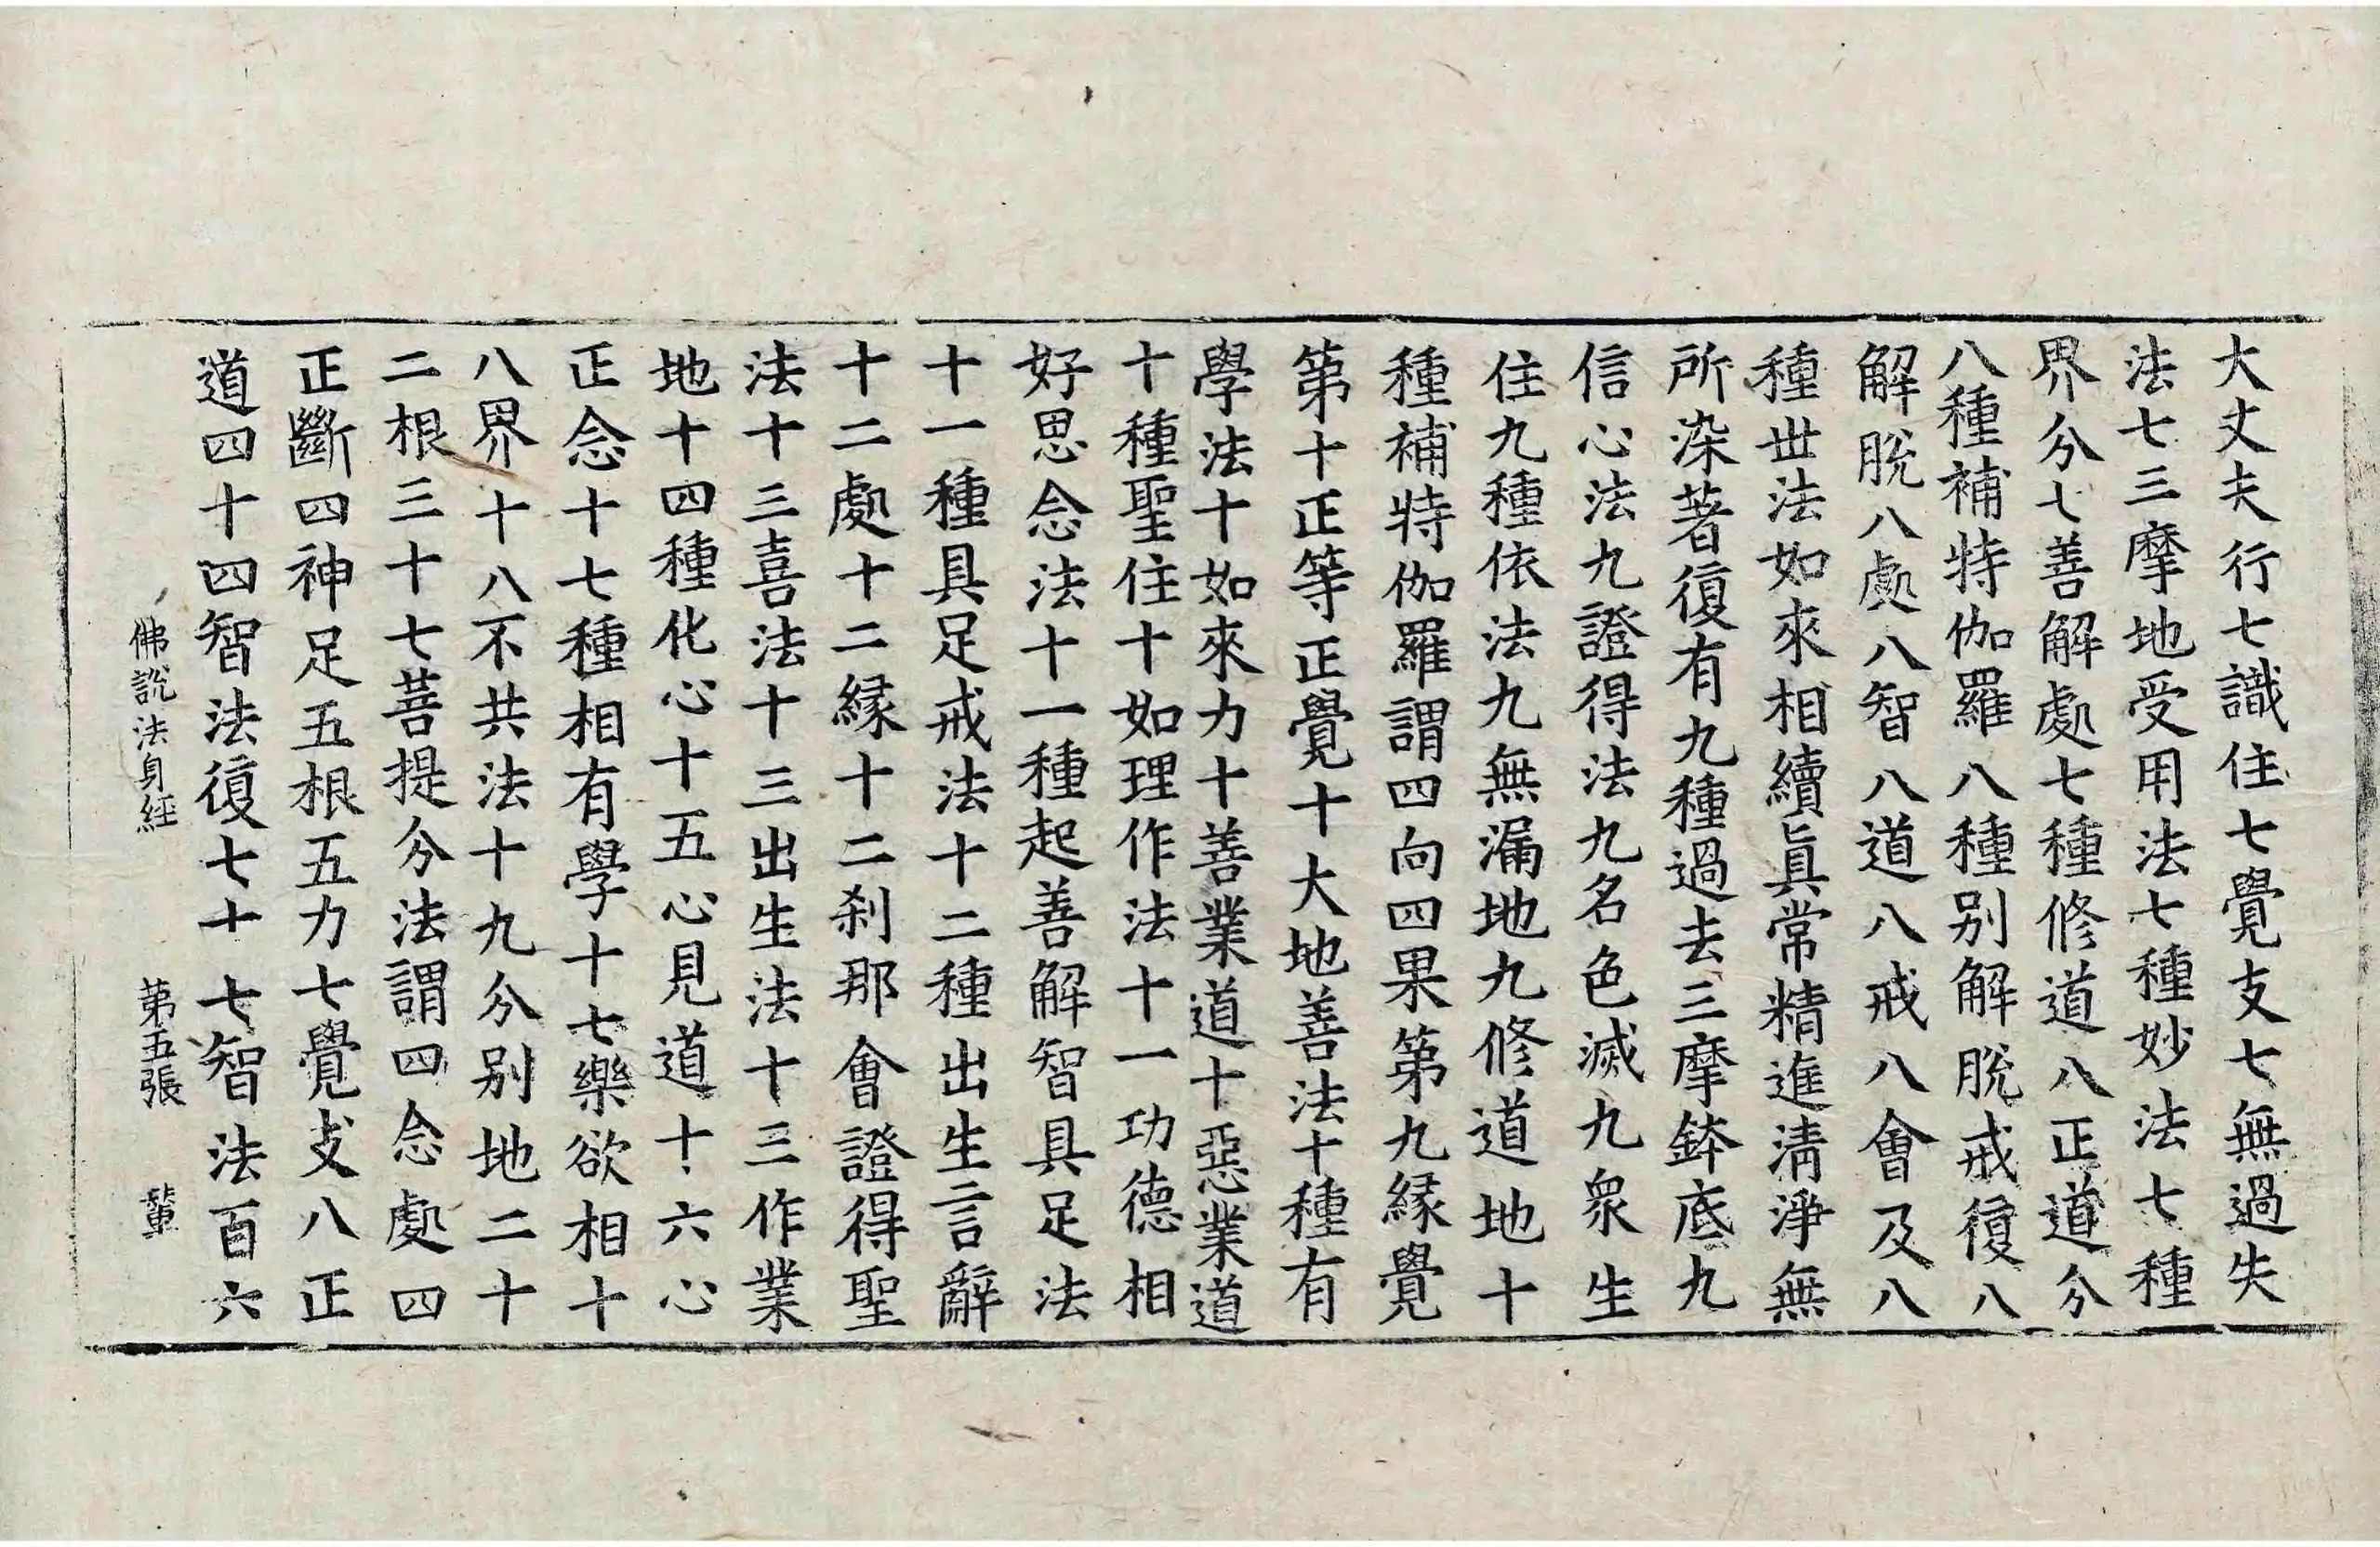 大丈夫行七識住七覺支七無過失
法七三摩地受用法七種妙法七種
界分七善解處七種修道八正道分
八種補特伽羅八種別解脫戒復八
解脫八處八智八道八戒八會及八
種世法如來相續眞常精進淸淨無
所染著復有九種過去三摩鉢底九
信心法九證得法九名色滅九衆生
住九種依法九無漏地九修道地十
種補特伽羅謂四向四果第九緣覺
第十正等正覺十大地善法十種有
學法十如來力十善業道十惡業道
十種聖住十如理作法十一功德相
好思念法十一種起善解智具足法
十一種具足戒法十二種出生言辭
十二處十二緣十二刹那會證得聖
法十三喜法十三出生法十三作業
地十四種化心十五心見道十六心
正念十七種相有學十七樂欲相十
八界十八不共法十九分別地二十
二根三十七菩提分法謂四念處四
正斷四神足五根五力七覺支八正
道四十四智法復七十七智法百六
佛說法身經 第五張 輦